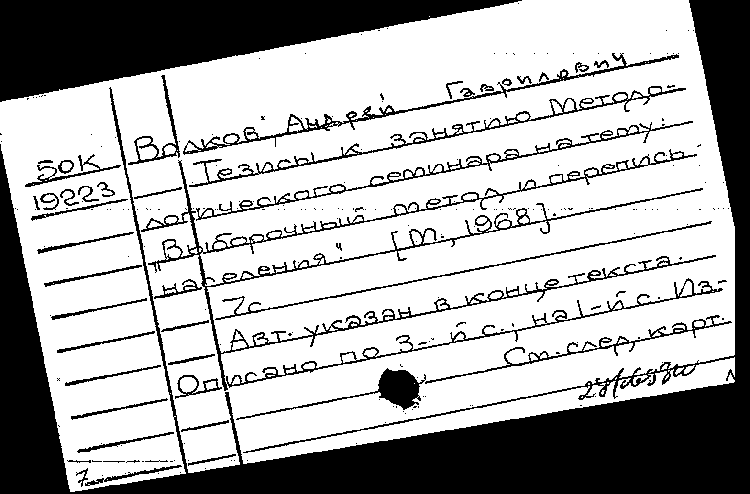 Волков, Андрей Гаврилович
50К
19223
Тезисы к занятию Методо-
логического семинара на тему:
"Выборочный метод и перепись
населения". [М., 1968].
7с
Авт. указан в конце текста.
Описано по 3-й с.; на 1-й с. Из-
См. след. карт.
7